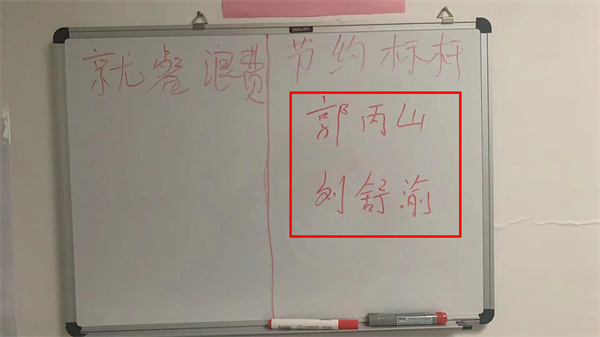 deli
就餐浪费
节约标杆
郭丙山
刘舒渝